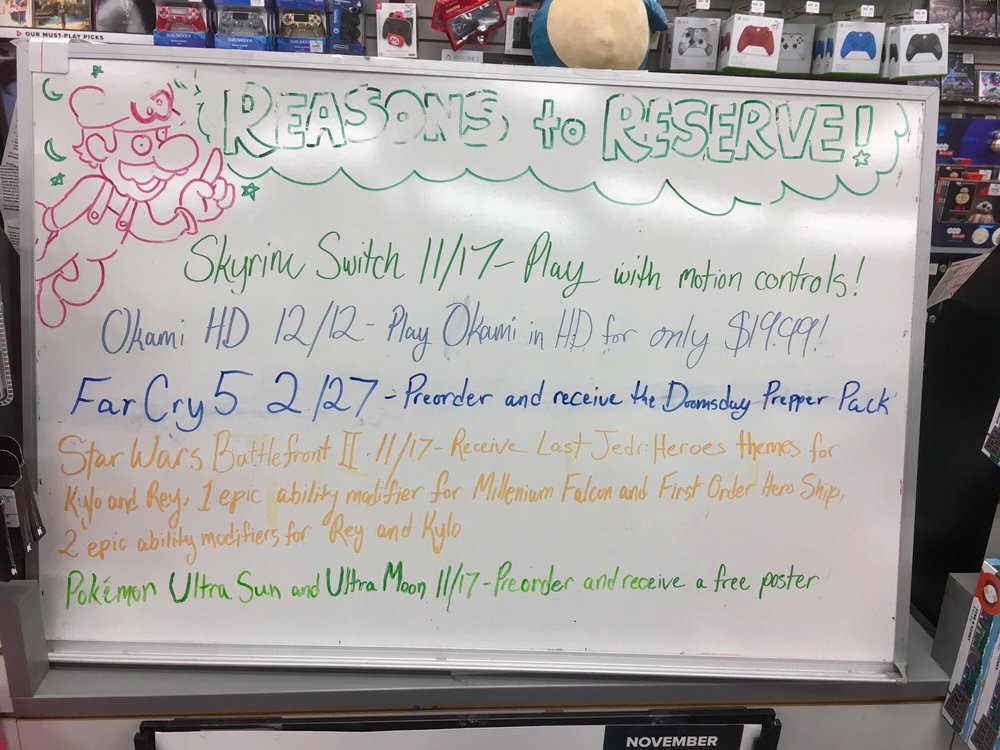 OUR MUST-PLAY PICKS
DUALSHOCK 4
DUALSHOCK 4
DUALSHOCK 4
REASONS to RESERVE!
Skyrim Switch 11/17 - Play with motion controls!
Okami HD 12/12 - Play Okami in HD for only $19.99!
Far Cry 5 2/27 - Preorder and receive the Doomsday Prepper Pack
Star Wars Battlefront II 11/17 - Receive Last Jedi: Heroes themes for
Kylo and Rey, 1 epic ability modifier for Millenium Falcon and First Order Hero Ship,
2 epic ability modifiers for Rey and Kylo
Pokémon Ultra Sun and Ultra Moon 11/17 - Preorder and receive a free poster
NOVEMBER